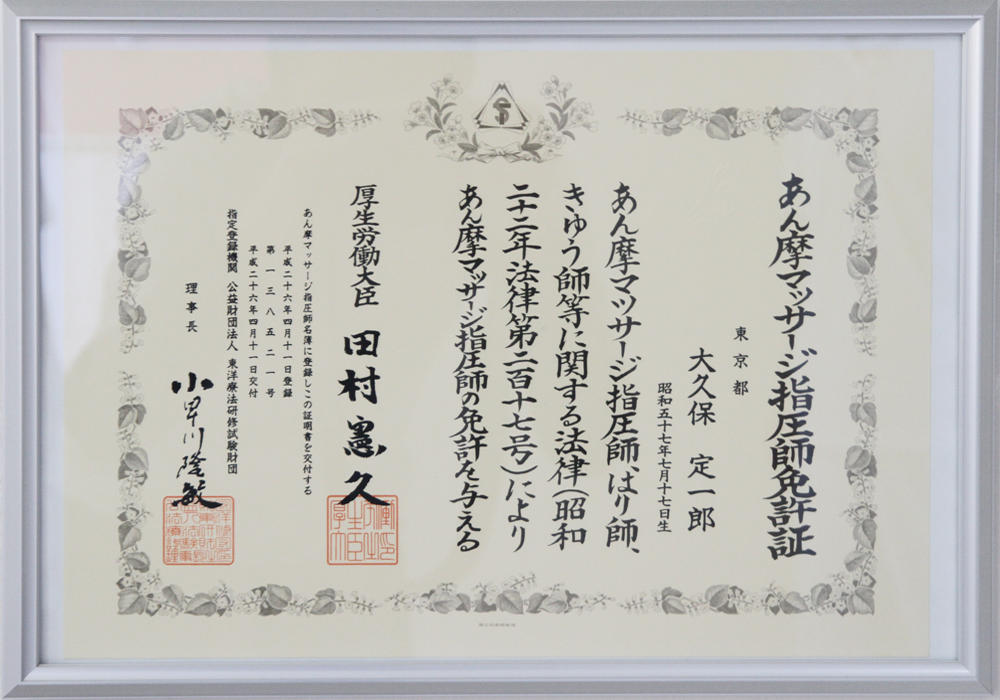 あん摩マッサージ指圧師免許証
東京都
大久保 定一郎
昭和五十七年七月十七日生
あん摩マツサージ指圧師、はり師、
きゆう師等に関する法律(昭和
二十二年法律第二百十七号)により
あん摩マッサージ指圧師の免許を与える
厚生労働大臣 田村憲久
あん摩マッサージ指圧師名簿に登録しこの証明書を交付する
平成二十六年四月十一日登録
第一三八五二一号
平成二十六年四月十一日交付
指定登録機関 公益財団法人 東洋療法研修試験財団
理事長 小早川隆敏